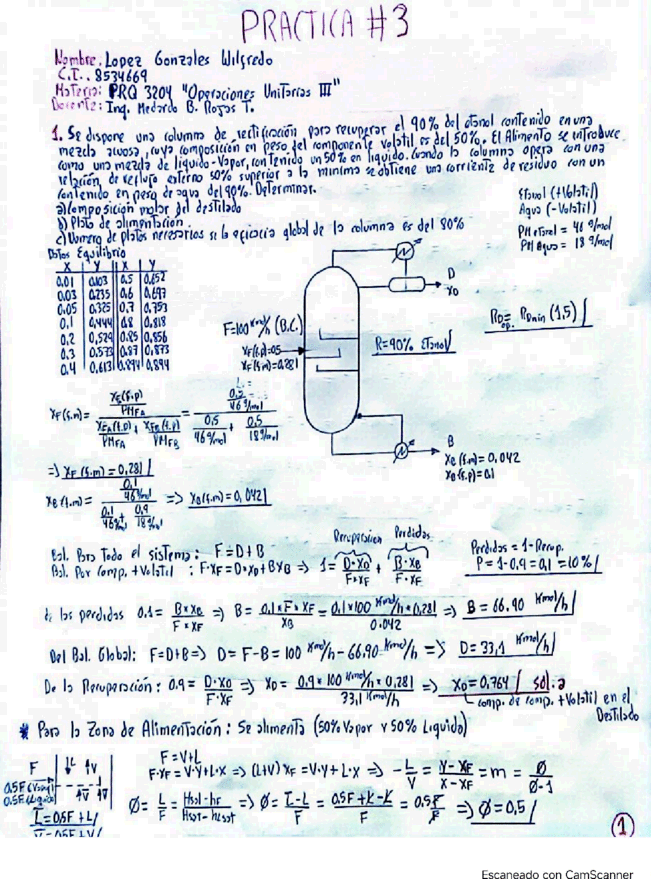 PRACTICA #3
Nombre: Lopez Gonzales Wilfredo
C.I.: 8534669
Materia: PRQ 3204 "Operaciones Unitarias III"
Docente: Ing. Medardo B. Rojas T.
1. Se dispone una columna de rectificación para recuperar el 90% del etanol contenido en una
mezcla acuosa, cuya composición en peso del componente volatil es del 50%. El Alimento se introduce
como una mezcla de liquido-Vapor, contenido un 50% en liquido. Cuando la columna opera con una
relación de reflujo externo 50% superior a la minima se obtiene una corriente de residuo con un
contenido en peso de agua del 90%. Determinar.
a) Composición molar del destilado
b) Plato de alimentación.
c) Numero de platos necesarios si la eficacia global de la columna es del 80%
Etanol (+Volatil)
Agua (-Volatil)
PM etanol = 46 g/mol
PM Agua = 18 g/mol
Datos Equilibrio
X Y X Y
0.01 0.103 0.5 0.652
0.03 0.235 0.6 0.697
0.05 0.325 0.7 0.753
0.1 0.444 0.8 0.818
0.2 0.529 0.85 0.856
0.3 0.573 0.87 0.873
0.4 0.613 0.894 0.894
D
XD
F=100 Kmol/h (B.C.)
XF(f.p)=0.5
XF(f.m)=0.281
R=90% etanol
RDop. = RDmin (1,5)
B
XB (f.m) = 0,042
XB(f.p)=0.1
XF(f.m) = (XF(f.p)/PMFA) / (XFA(f.p)/PMFA + XFB(f.p)/PMFB) = (0.5/46 g/mol) / (0.5/46 g/mol + 0.5/18 g/mol)
=> XF(f.m) = 0,281
XB(f.m) = (0.1/46 g/mol) / (0.1/46 g/mol + 0.9/18 g/mol) => XB(f.m) = 0,042
Recuperacion Perdidas
Bal. Para Todo el sistema: F = D + B
Bal. Por Comp. +Volatil : F·XF = D·XD + B·XB => 1 = D·XD/F·XF + B·XB/F·XF
Perdidas = 1-Recup.
P = 1-0.9 = 0,1 = 10%
de las perdidas 0.1 = B·XB/F·XF => B = 0.1·F·XF/XB = 0.1·100 Kmol/h·0.281/0.042 => B = 66.90 Kmol/h
Del Bal. Global: F=D+B => D = F-B = 100 Kmol/h - 66.90 Kmol/h => D = 33,1 Kmol/h
De la Recuperación: 0.9 = D·XD/F·XF => XD = 0.9·100 Kmol/h·0.281/33,1 Kmol/h => XD = 0.764 sol. a
comp. de comp. +Volatil en el
Destilado
* Para la Zona de Alimentación: Se alimenta (50% Vapor y 50% Liquido)
F
0.5F (Vapor)
0.5F (Liquido)
↓L ↑V
F = V+L
F·XF = V·Y+L·X => (L+V) XF = V·Y+L·X => -L/V = Y-XF/X-XF = m = Ø/Ø-1
L̅ = 0.5F + L
V = 0.5F + V̅
Ø = L/F = Hsat-hF/Hsat-hLsat => Ø = L̅-L/F = 0.5F+L-L/F = 0.5F/F => Ø = 0.5
1
Escaneado con CamScanner